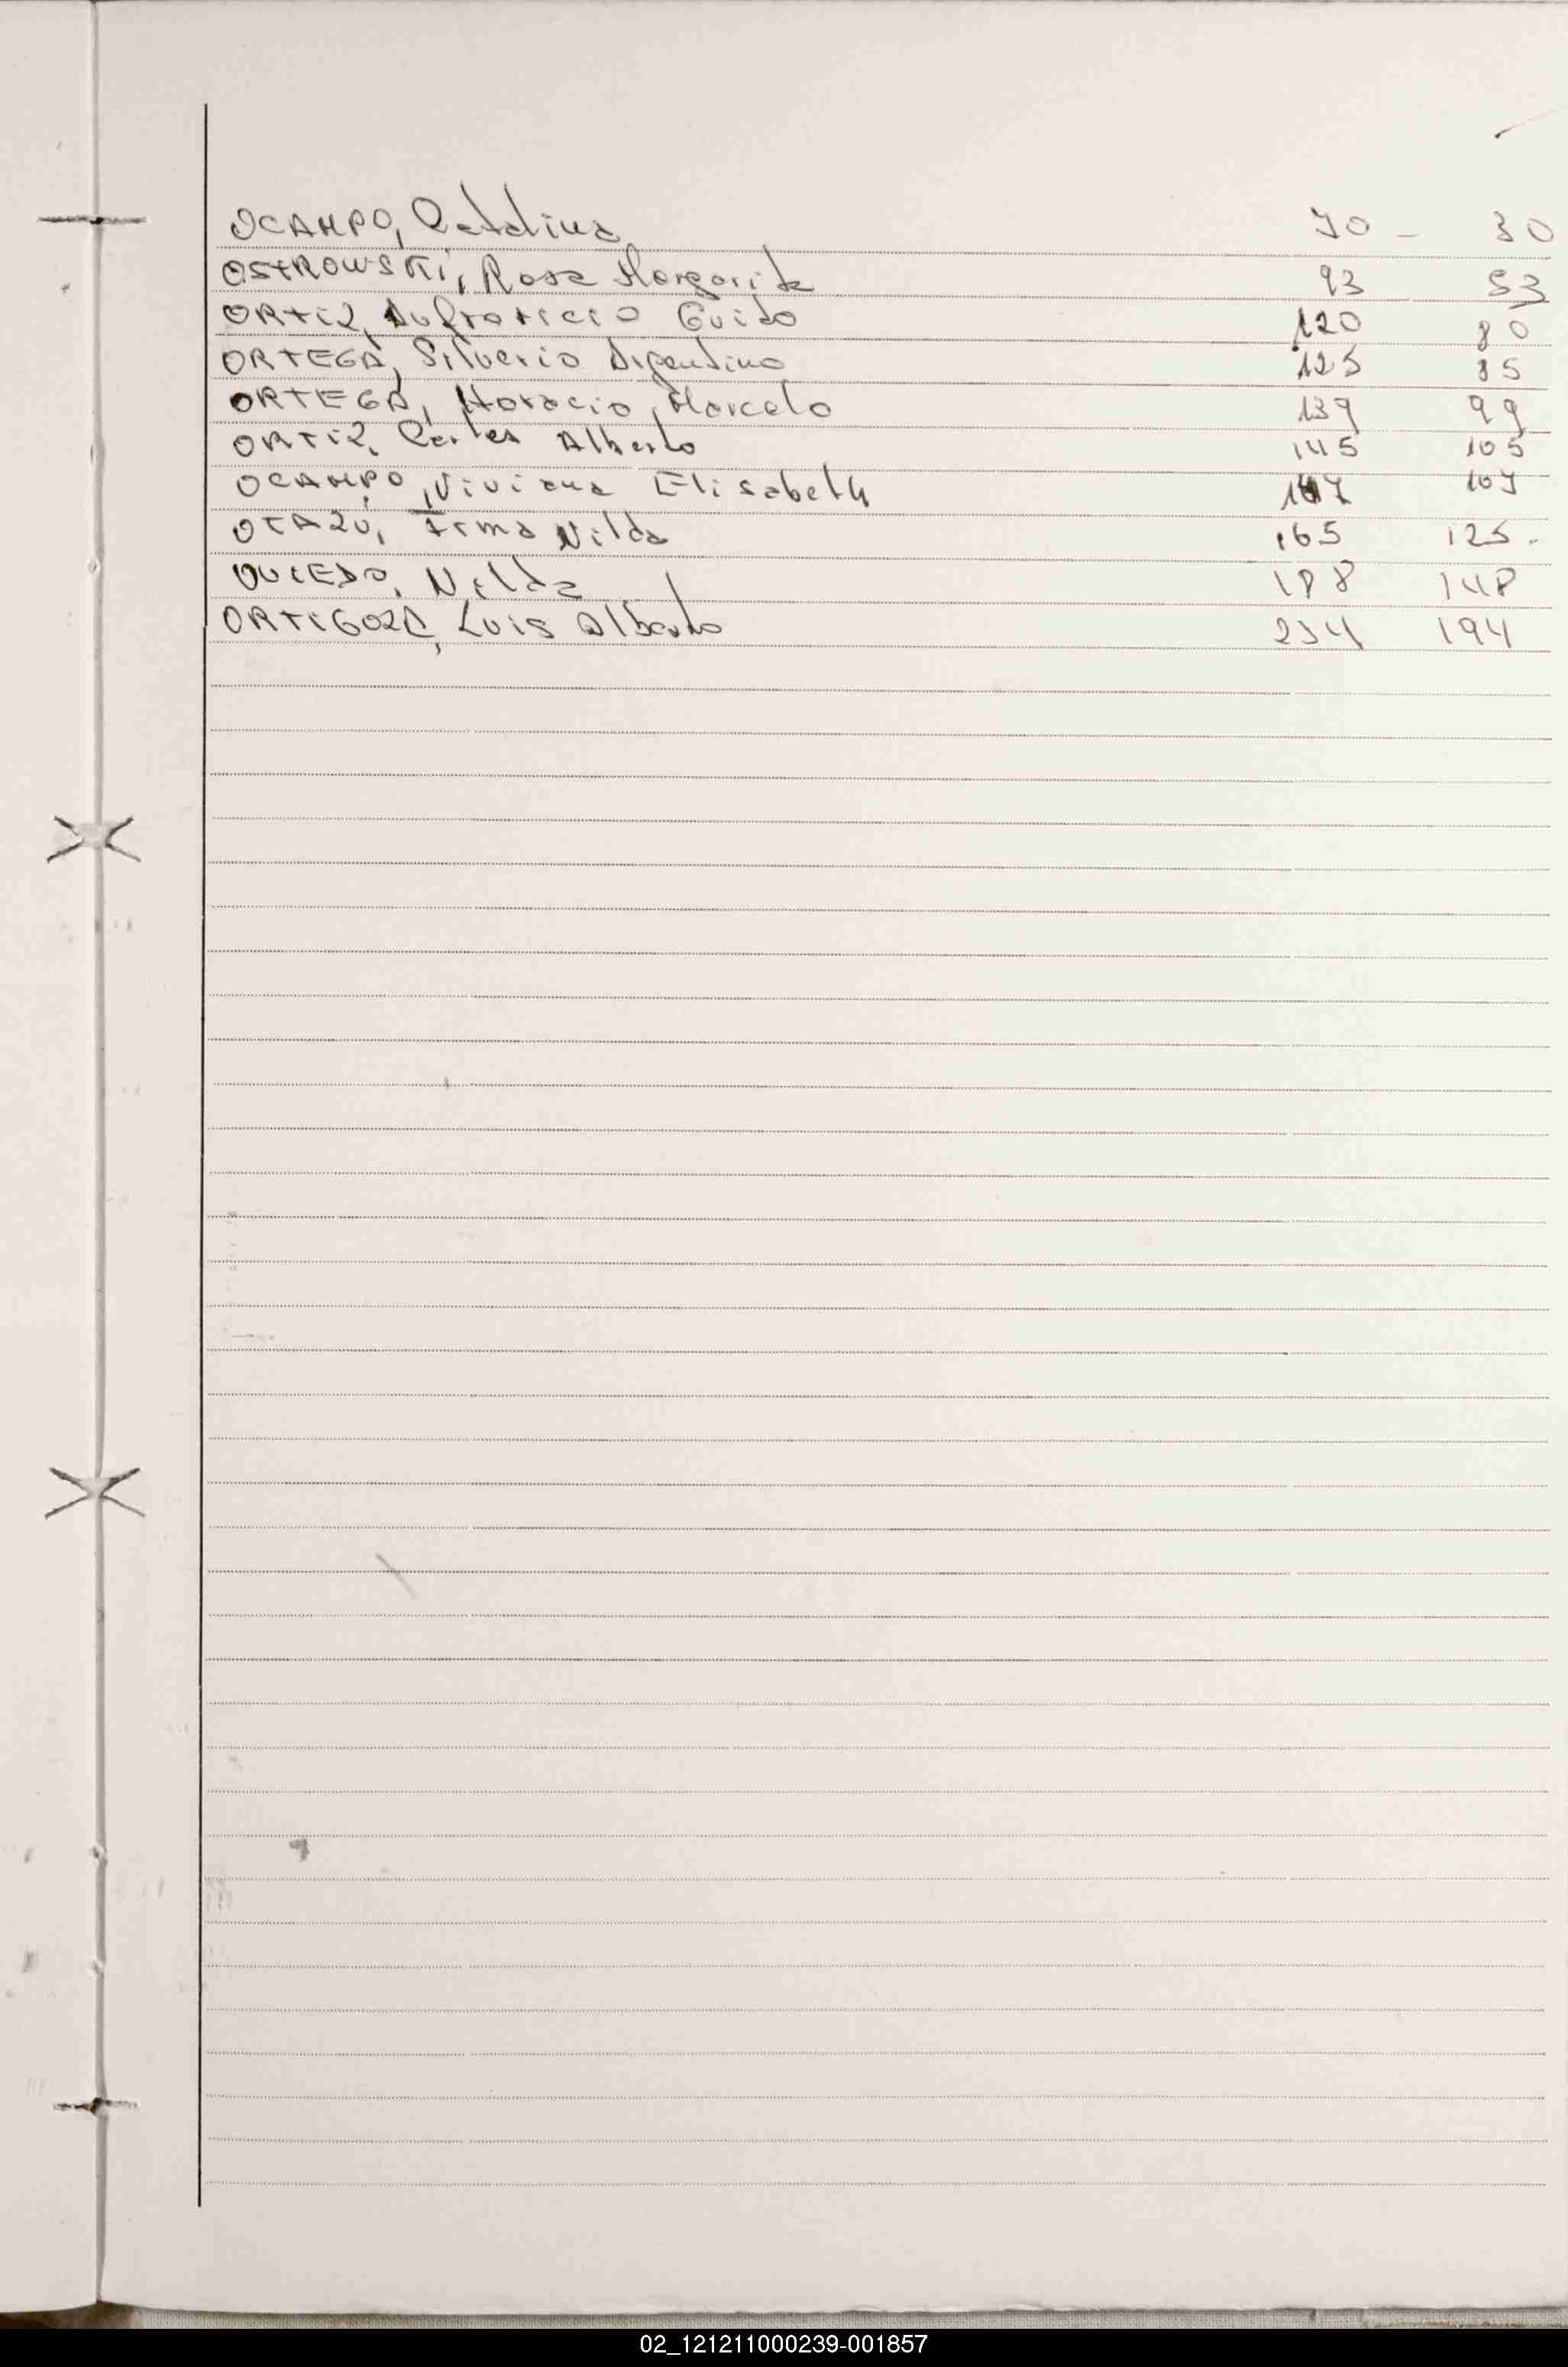 OCAMPO, Catalina 70 - 30
OSTROWSKI, Rosa Margarita 93 53
ORTIZ, Guido 120 80
ORTEGA, Silverio Argentino 125 85
ORTEGA, Horacio, Marcelo 139 99
ORTIZ, Carlos Alberto 145 105
OCAMPO, Viviana Elisabeth 147 107
OTAZÚ, Irma Nilda 165 125.
OVIEDO, Nilda 188 148
ORTIGOZA, Luis Alberto 234 194
02_121211000239-001857